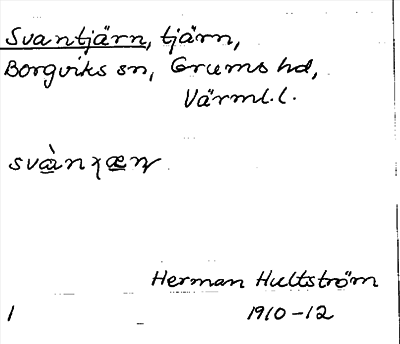 Svantjärn, tjärn,
Borgviks sn, Grums hd,
Värml.l.
Herman Hultström
1910-12
1